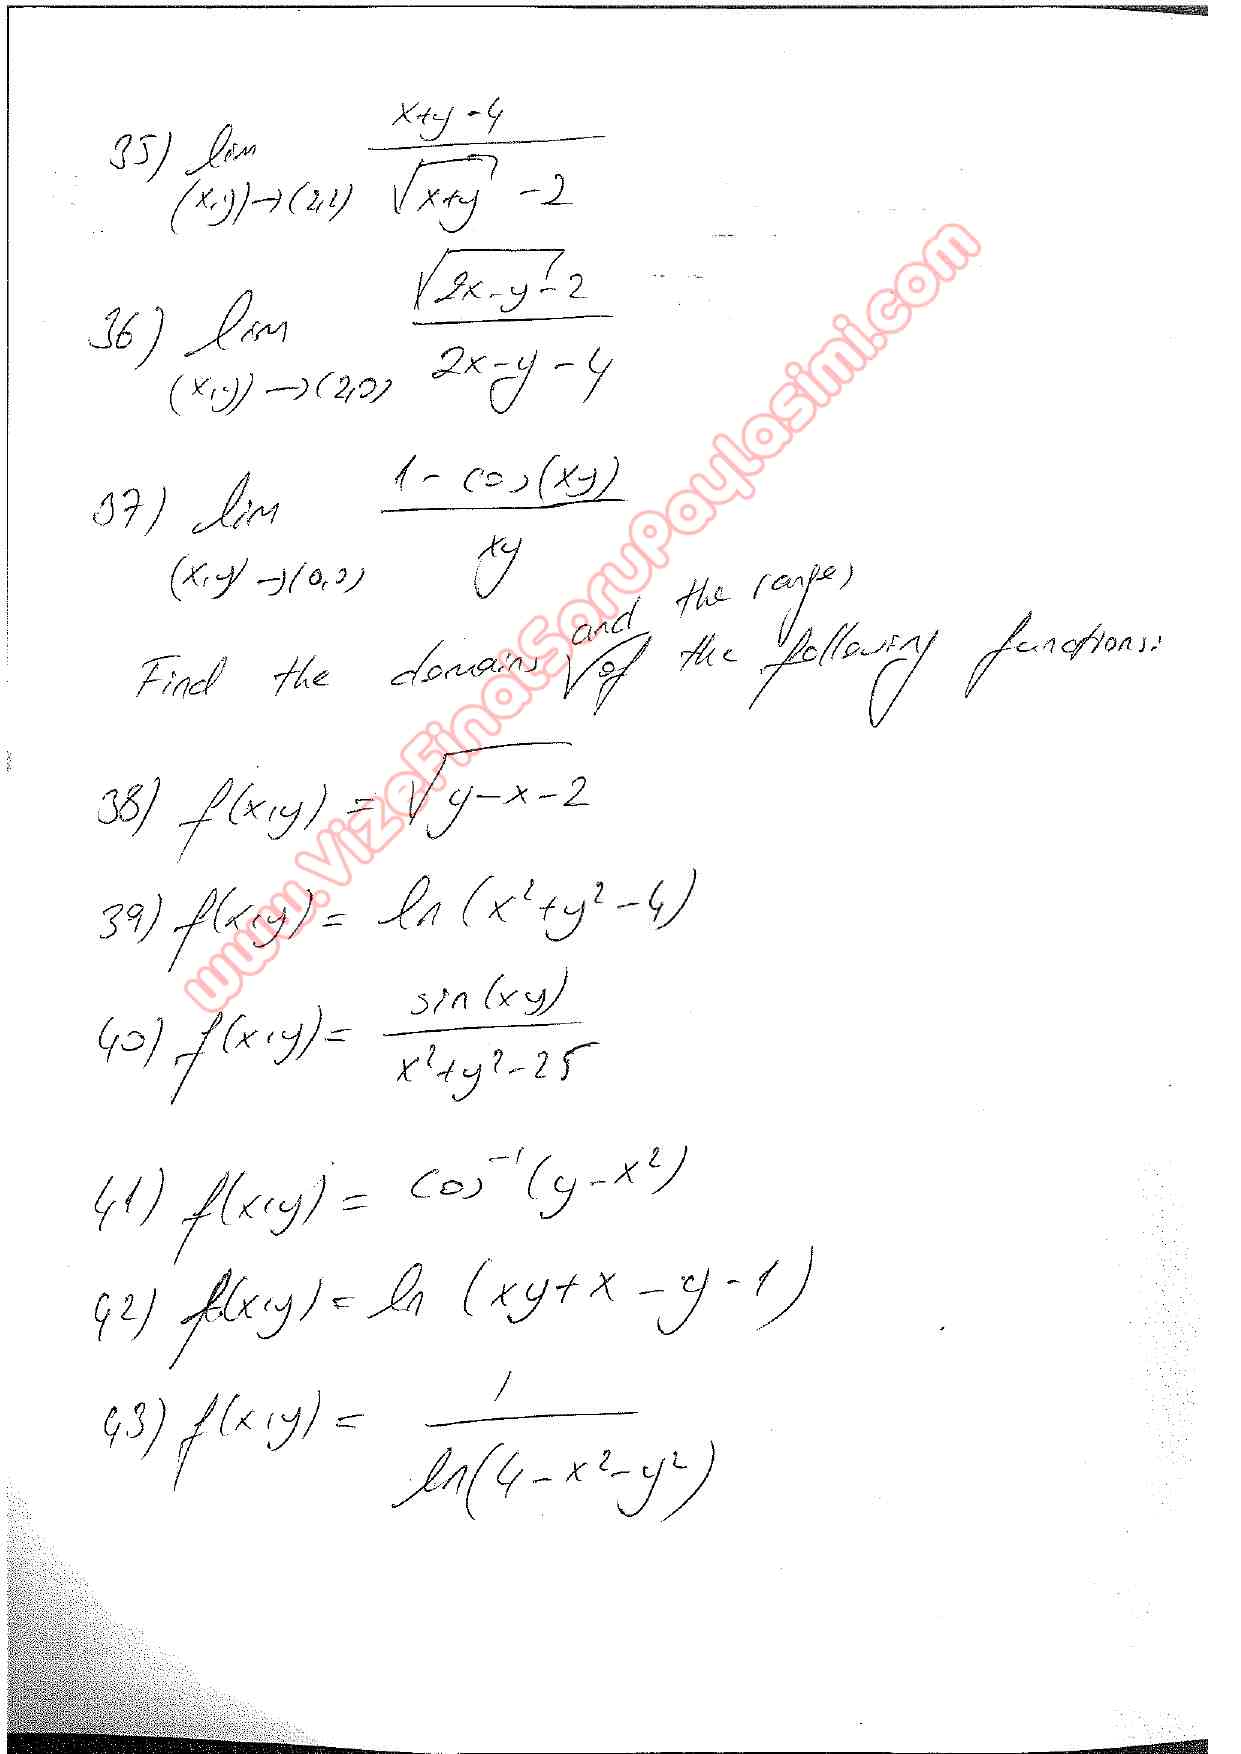 35) lim x+y-4
(x,y)→(2,2) √x+y -2
36) lim √2x-y -2
(x,y)→(2,0) 2x-y-4
37) lim 1-cos(xy)
(x,y)→(0,0) xy
Find the domains and the ranges of the following functions:
38) f(x,y) = √y-x-2
39) f(x,y) = ln(x²+y²-4)
40) f(x,y) = sin(xy)
x²+y²-25
41) f(x,y) = cos⁻¹(y-x²)
42) f(x,y) = ln(xy+x-y-1)
43) f(x,y) = 1
ln(4-x²-y²)
www.VizeFinalSoruPaylasimi.com